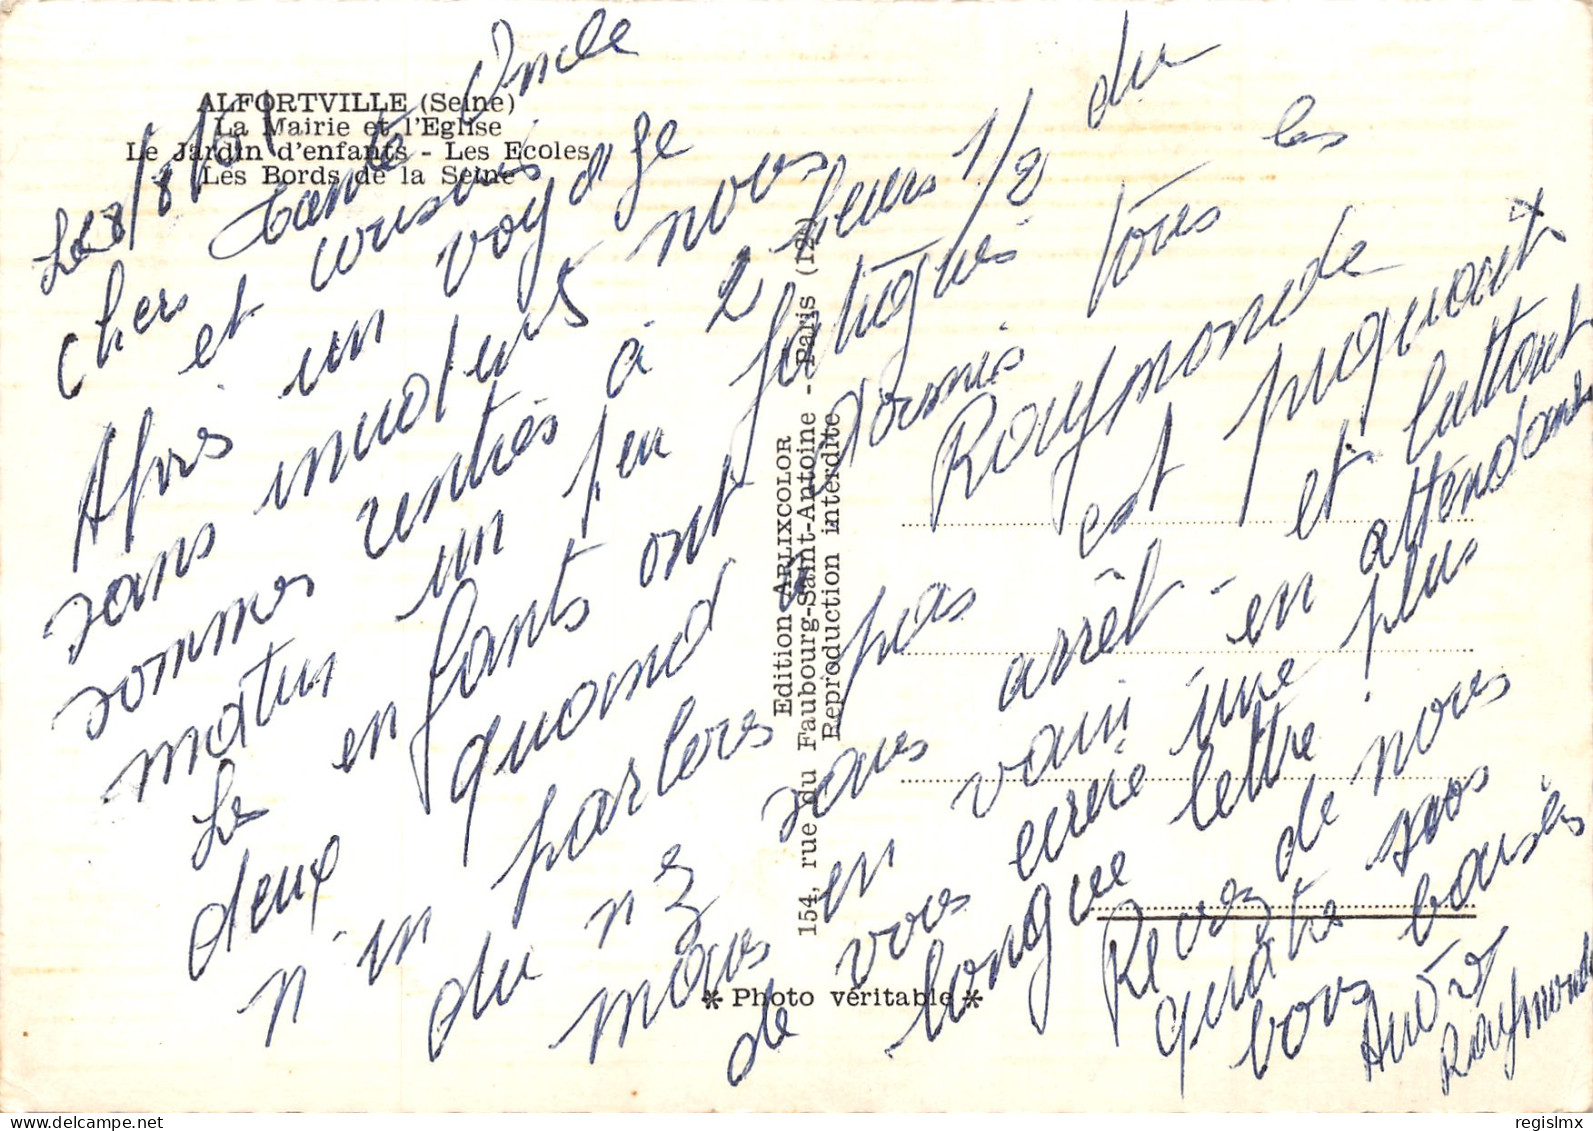 ALFORTVILLE (Seine)
La Mairie et l'Eglise
Le Jardin d'enfants - Les Ecoles
Les Bords de la Seine
Le 8/8/61
Chers tante Oncle
et cousins
Après un voyage
sans moteurs nous
sommes rentrés à 2 heurs 1/2 du
matin un peu fatigués
Le enfants ont dormis tous les
deux quand Raymonde
n'en parlers pas est piquant
du nez sans arrêt et luttant
mais en vain - en attendant
de vous ecrire une plus
longue lettre
Recevez de nous
quatre nos
bons baisés
André
Raymonde
Edition ARLIXCOLOR
154, rue du Faubourg-Saint-Antoine - Paris (12e)
Reproduction interdite
* Photo véritable *
© regislmx